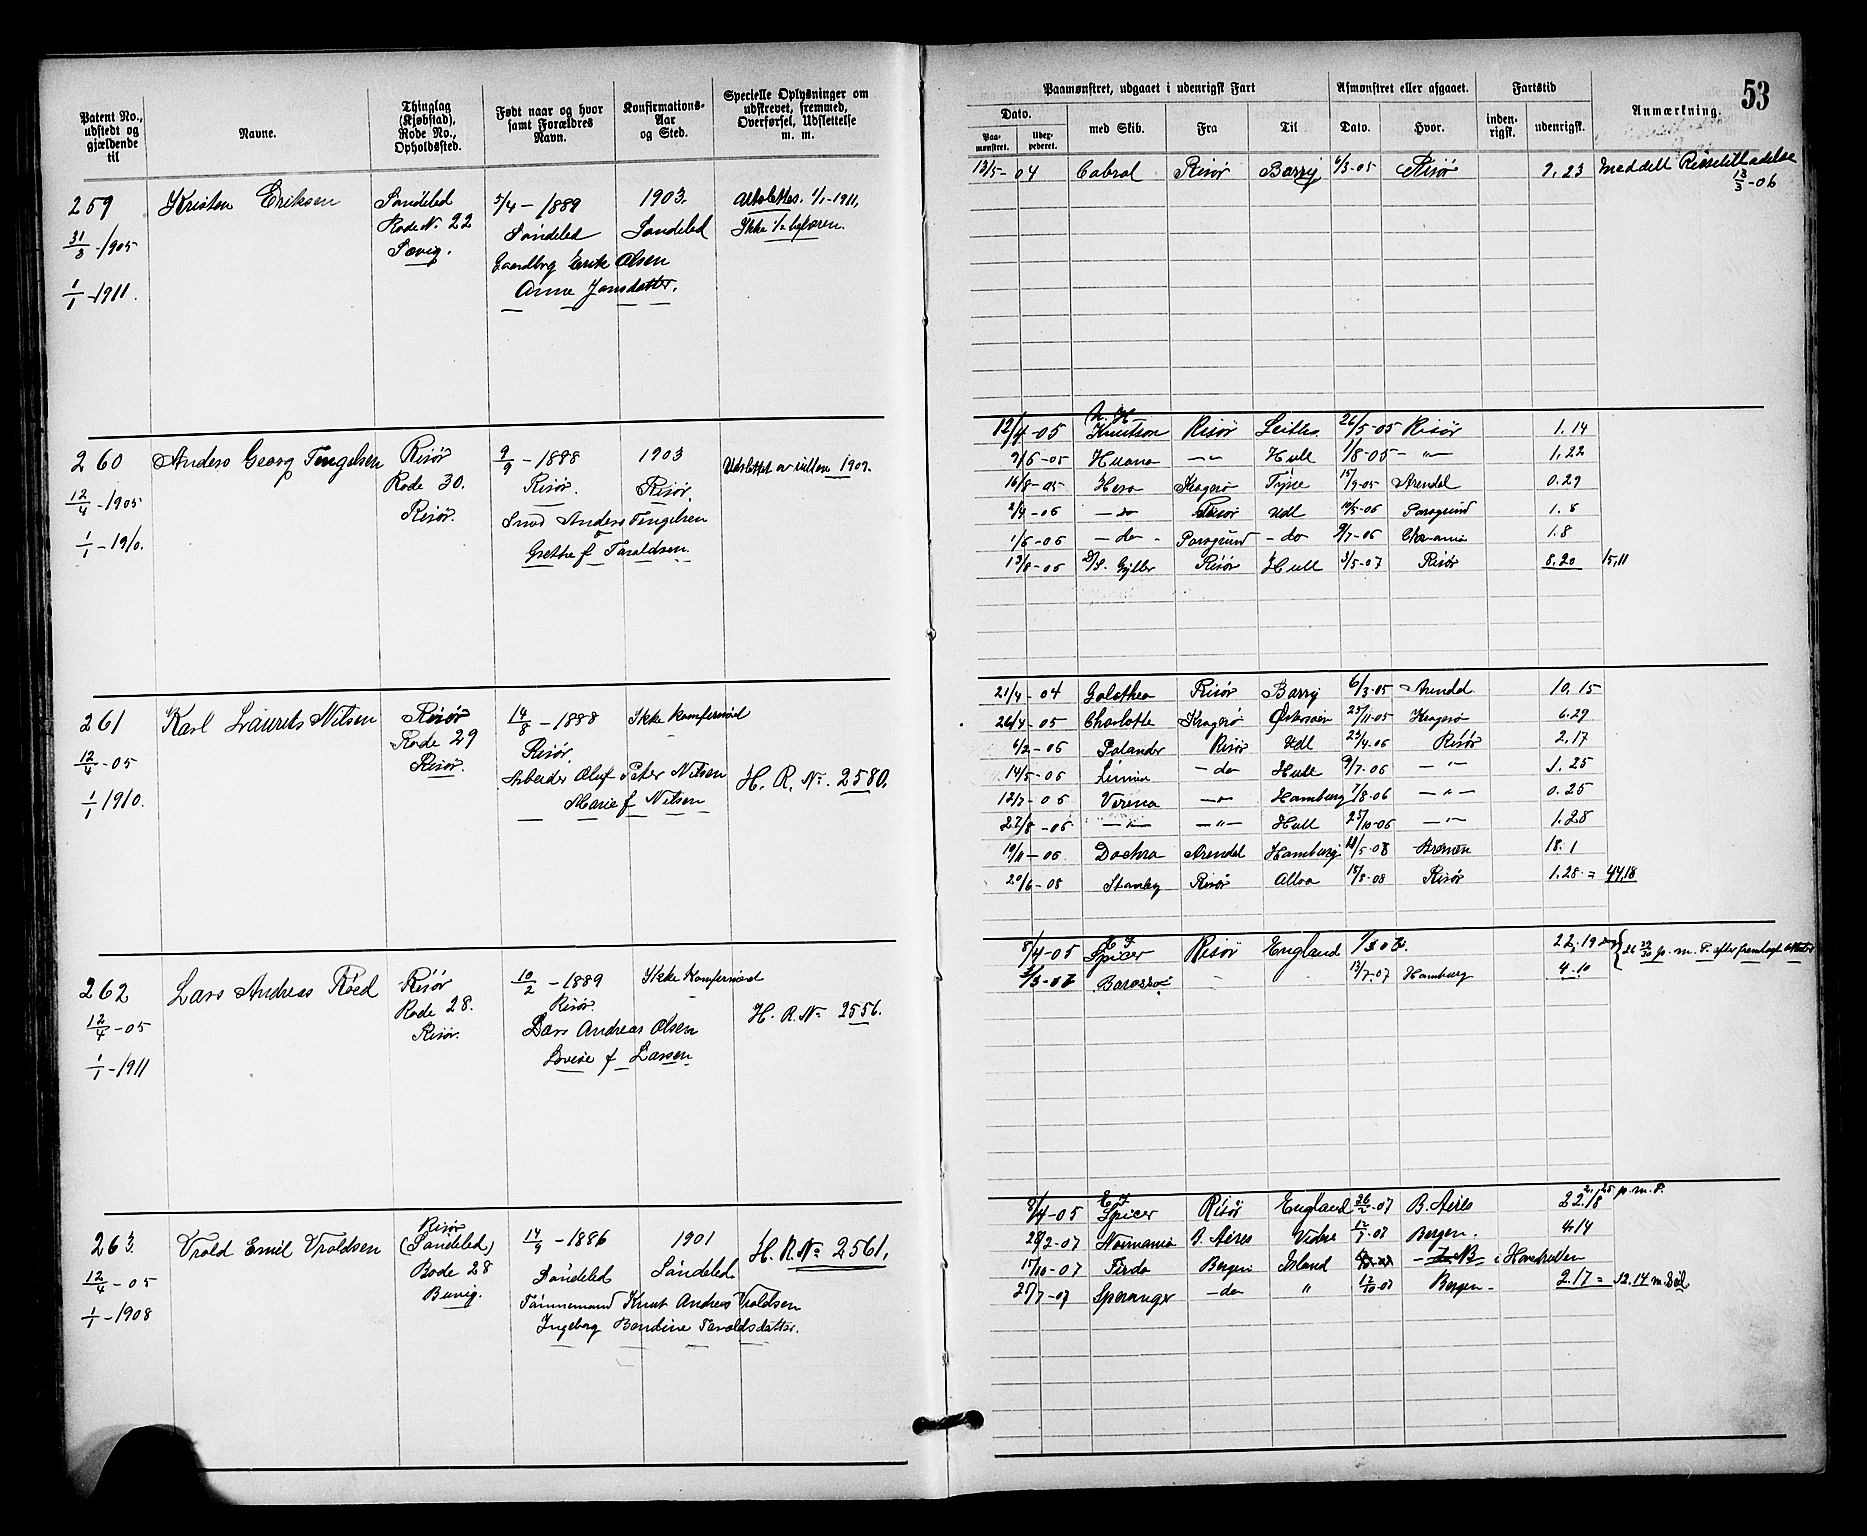 Patent No., udstedt og gjældende til
Navne.
Thinglag (Kjøbstad), Rode No., Opholdssted.
Født naar og hvor samt Forældres Navn.
Konfirmations-Aar og Sted.
Specielle Oplysninger om udskrevet, fremmed, Overførsel, Udslettelse m. m.
259
31/3 - 1905
1/1 - 1911.
Kristen Eriksen
Søndeled
Rode No. 22
Sævig.
5/4 - 1889
Søndeled
Gaardbrg Erik Olsen
Anne Jensdatter.
1903.
Søndeled
1/1-1911,
Ikke
260
12/4 - 1905
1/1 - 1910.
Anders Georg Tengelsen
Risør
Rode 30.
Risør.
9/9 - 1888
Risør.
Anders Tengelsen
Grethe f Taraldsen.
1903
Risør.
Udslettet av rullen 1909.
261
12/4 - 05
1/1 1910.
Karl Laurits Nilsen
Risør
Rode 29
Risør.
14/8 - 1888
Risør.
Arbeider Oluf Peter Nilsen
Marie f Nilsen
Ikke konfermeret
H. R. No. 2580.
262
12/4 - 05
1/1 - 1911
Lars Andreas Røed
Risør
Rode 28.
Risør.
10/2 - 1889
Risør.
Lars Andreas Olsen
Lovise f Larsen
Ikke konfermed
H. R. No 2556.
263.
12/4 - 05
1/1 - 1908
Vrold Emil Vroldsen
Risør
(Søndeled)
Rode 28
Buvig.
14/9 - 1886
Søndeled
Tømmermand Knut Andreas Vroldsen
Ingeborg Bondine Taraldsdatter.
1901
Søndeled
H. R. No 2561.
53
Paamønstret, udgaaet i udenrigsk Fart
Afmønstret eller afgaaet.
Fartstid
Anmærkning.
Dato.
Paamønstret.
med Skib.
Fra
Til
Dato.
Hvor.
indenrigsk.
udenrigsk.
13/5 - 04 Cabral Risør Barry 6/3-05 Risør 9.23 Meddelt
13/3 - 06
12/4 - 05 Knutson Risør Leith. 26/5-05 Risør 1.14
9/6 - 05 Huana - " - Hull 1/8-05 - " - 1.22
16/8 - 05 Hera Kragerø Tyne 15/9-05 Arendal 0.29
2/4 - 06 - do Risør Udl 10/5-06 Porsgrund 1.8
1/6 - 06 - do - Porsgrund - do 9/7-06 1.8
13/8 - 06 D/S. Gyller Risør Hull 3/5-07 Risør 8.20 15,11
21/4 - 04 Galathea Risør Barry 6/3-05 Arendal 10.15
26/4 - 05 Charlotte Kragerø Østersøen 25/11-05 Kragerø 6.29
6/2 - 06 Palander Risør Udl 23/4-06 Risør 2.17
14/5 - 06 - do Hull 9/7-06 - " - 1.25
12/7 - 06 Verena Hamburg 7/8-06 - " - 0.25
27/8 - 06 - " - - " - Hull 25/10-06 - " - 1.28
19/11 - 06 Arendal Hamburg 20/5-08 Bremen 18.1
20/6 - 08 Stanley Risør Alloa 18/8-08 Risør 1.28 = 44.18
8/4 - 05 E. F. Spicer Risør England 22.19
Barossa 13/7-07 Hamburg 4.10
2.25 p. m. F.
8/4 - 05 E F Spicer Risør England 26/2-07 B. Aires 22.18
28/2-07 Normania B. Aires Bergen. 4.14
17/10-07 Firda Bergen Island i Havetrullen
27/7-07 Speranger - do " 12/10-07 Bergen - 2.17 =